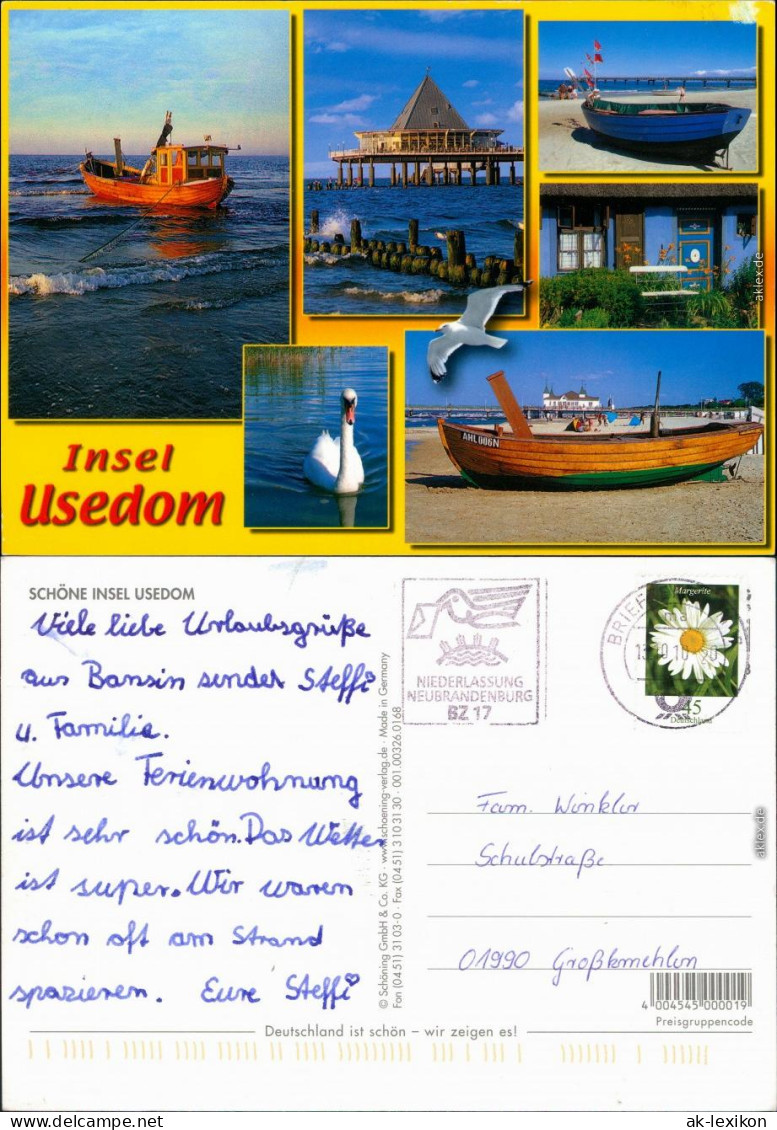 AHL 006N
Insel
Usedom
aklex.de
SCHÖNE INSEL USEDOM
Viele liebe Urlaubsgrüße
aus Bansin sendet Steffi
u. Familie.
Unsere Ferienwohnung
ist sehr schön. Das Wetter
ist super. Wir waren
schon oft am Strand
spazieren. Eure Steffi
© Schöning GmbH & Co. KG · www.schoening-verlag.de · Made in Germany
Fon (04 51) 31 03-0 · Fax (04 51) 3 10 31 30 · 001.00326.0168
NIEDERLASSUNG
NEUBRANDENBURG
BZ 17
BRIEF
Margerite
45
Deutschland
Fam. Winkler
Schulstraße
01990 Großkmehlen
4 004545 000019
Preisgruppencode
Deutschland ist schön – wir zeigen es!
aklex.de
www.ak-ansichtskarten.de
ak-lexikon